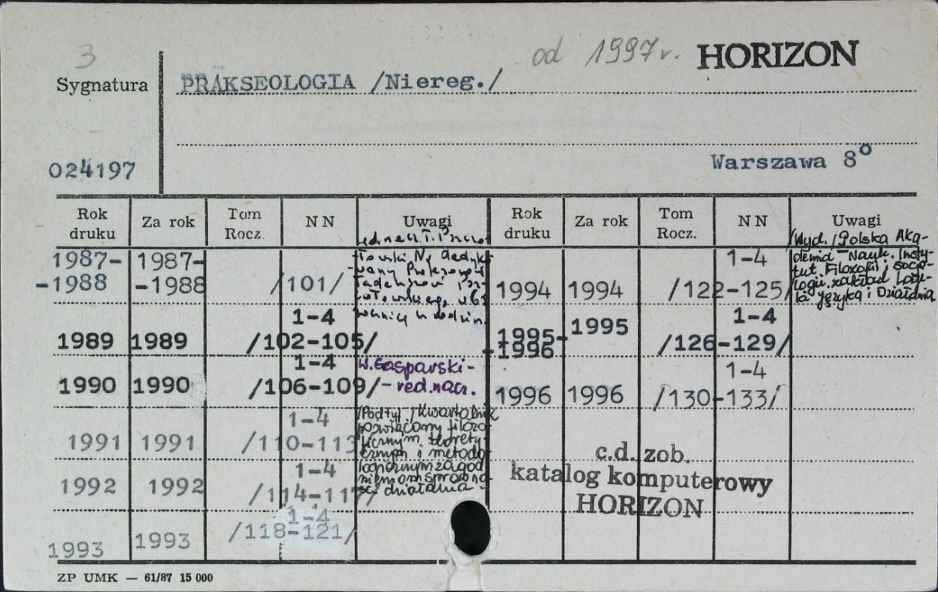 3
od 1997r. HORIZON
Sygnatura PRAKSEOLOGIA /Niereg./
024197 Warszawa 8°
Rok druku Za rok Tom Rocz. N N Uwagi Rok druku Za rok Tom Rocz. N N Uwagi
1987-
-1988 1987-
-1988 /101/
1989 1989 1-4
/102-105/
1990 1990 1-4
/106-109/ W. Gasparski-
-red.nacz.
1991 1991 1-4
/110-113
1992 1992 1-4
/114-117/
/Podtyt./ Kwartalnik
poświęcony filozo-
ficznym, teorety-
cznym i metodo-
logicznym zagad
nieniom sprawno
ści działania-
1993 1993 1-4
/118-121/
1994 1994 1-4
/122-125/
/Wyd./ Polska Aka-
demia Nauk. Insty-
tut Filozofii i Socjo-
logii. Zakład Logi-
ki Języka i Działania
1995-
-1996 1995 1-4
/126-129/
1996 1996 1-4
/130-133/
c.d. zob.
katalog komputerowy
HORIZON
ZP UMK — 61/87 15 000